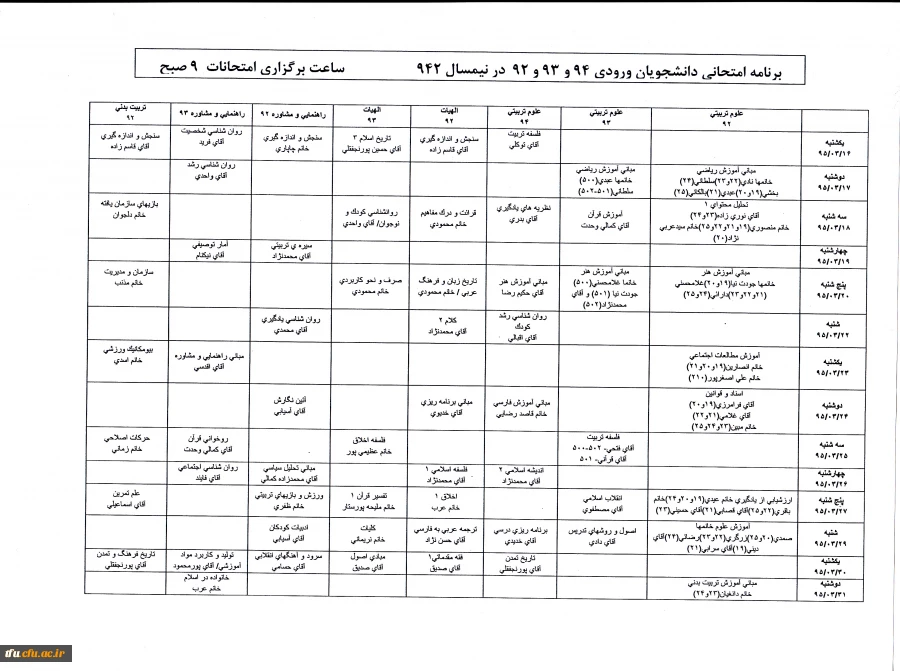 برنامه امتحاني دانشجويان ورودي ۹۴ و ۹۳ و ۹۲ در نيمسال ۹۴۲ ساعت برگزاري امتحانات ۹ صبح
علوم تربيتي ۹۲ علوم تربيتي ۹۳ علوم تربيتي ۹۴ الهيات ۹۲ الهيات ۹۳ راهنمايي و مشاوره ۹۲ راهنمايي و مشاوره ۹۳ تربيت بدني ۹۲
يكشنبه ۹۵/۰۳/۱۶
فلسفه تربيت آقاي توكلي
سنجش و اندازه گيري آقاي قاسم زاده
تاريخ اسلام ۳ آقاي حسين پورنجفقلي
سنجش و اندازه گيري خانم چاپاري
روان شناسي شخصيت آقاي فريد
سنجش و اندازه گيري آقاي قاسم زاده
دوشنبه ۹۵/۰۳/۱۷
مباني آموزش رياضي
خانمها نادي(۲۲و۲۳)سلطاني(۲۴)
بخشي(۱۹و۲۰)عبدي(۲۱)بالكاني(۲۵)
مباني آموزش رياضي
خانمها عبدي(۵۰۰)
سلطاني(۵۰۱-۵۰۲)
روان شناسي رشد آقاي واحدي
سه شنبه ۹۵/۰۳/۱۸
تحليل محتواي ۱
آقاي نوري زاده(۲۳و۲۴)
خانم منصوري(۱۹و۲۱و۲۲و۲۵)خانم سيدعربي
نژاد(۲۰)
آموزش قرآن آقاي كمالي وحدت
نظريه هاي يادگيري آقاي بدري
قرائت و درك مفاهيم خانم محمودي
روانشناسي كودك و نوجوان/ آقاي واحدي
بازيهاي سازمان يافته خانم دلجوان
چهارشنبه ۹۵/۰۳/۱۹
سيره ي تربيتي آقاي محمدنژاد
آمار توصيفي آقاي نيكنام
پنج شنبه ۹۵/۰۳/۲۰
مباني آموزش هنر
خانمها جودت نيا(۱۹و۲۰)غلامحسني
(۲۱و۲۲و۲۳)داراني(۲۴و۲۵)
مباني آموزش هنر
خانما غلامحسني(۵۰۰)
جودت نيا (۵۰۱) و آقاي
محمدنژاد(۵۰۲)
مباني آموزش هنر آقاي حكيم رضا
تاريخ زبان و فرهنگ عربي / خانم محمودي
صرف و نحو كاربردي خانم محمودي
سازمان و مديريت خانم مذنب
شنبه ۹۵/۰۳/۲۲
روان شناسي رشد كودك آقاي اقبالي
كلام ۲ آقاي محمدنژاد
روان شناسي يادگيري آقاي محمدي
يكشنبه ۹۵/۰۳/۲۳
آموزش مطالعات اجتماعي
خانم انصارين(۱۹و۲۰و۲۱)
خانم علي اصغرپور(۲۱۰)
مباني راهنمايي و مشاوره آقاي اقدسي
بيومكانيك ورزشي خانم اسدي
دوشنبه ۹۵/۰۳/۲۴
اسناد و قوانين
آقاي فرامرزي(۱۹و۲۰)
آقاي غلامي(۲۱و۲۲)
خانم مبين(۲۳و۲۴و۲۵)
مباني آموزش فارسي خانم قاصد رضايي
مباني برنامه ريزي آقاي خديوي
آئين نگارش آقاي آسيابي
سه شنبه ۹۵/۰۳/۲۵
فلسفه تربيت
آقاي فتحي- ۵۰۲-۵۰۰
آقاي قرآني- ۵۰۱
فلسفه اخلاق خانم عظيمي پور
روخواني قرآن آقاي كمالي وحدت
حركات اصلاحي خانم زماني
چهارشنبه ۹۵/۰۳/۲۶
انديشه اسلامي ۲ آقاي محمدنژاد
فلسفه اسلامي ۱ آقاي محمدنژاد
مباني تحليل سياسي آقاي محمدزاده كمالي
روان شناسي اجتماعي آقاي قايند
پنج شنبه ۹۵/۰۳/۲۷
ارزشيابي از يادگيري خانم عبدي(۱۹و۲۰و۲۴)خانم
باقري(۲۲و۲۵)آقاي قصابي(۲۱)آقاي حسيني(۲۳)
انقلاب اسلامي آقاي مصطفوي
اخلاق ۱ خانم عرب
تفسير قرآن ۱ خانم مليحه پورستار
ورزش و بازيهاي تربيتي خانم ظفري
علم تمرين آقاي اسماعيلي
شنبه ۹۵/۰۳/۲۹
آموزش علوم خانمها
صمدي(۲۰و۲۵)زرگري(۲۲و۲۳)رضائي(۲۴)آقاي
ديني(۱۹)آقاي سرابي(۲۱)
اصول و روشهاي تدريس آقاي دادي
برنامه ريزي درسي آقاي خديدي
ترجمه عربي به فارسي آقاي حسن نژاد
كليات خانم نريماني
ادبيات كودكان آقاي آسيابي
يكشنبه ۹۵/۰۳/۳۰
تاريخ تمدن آقاي پورنجفقلي
فقه مقدماتي۱ آقاي صديق
مبادي اصول آقاي صديق
سرود و آهنگهاي انقلابي آقاي حسامي
توليد و كاربرد مواد آموزشي/ آقاي پورمحمود
تاريخ فرهنگ و تمدن آقاي پورنجفقلي
دوشنبه ۹۵/۰۳/۳۱
مباني آموزش تربيت بدني
خانم دانغيان(۲۳و۲۴)
خانواده در اسلام خانم عرب
tfu.cfu.ac.ir